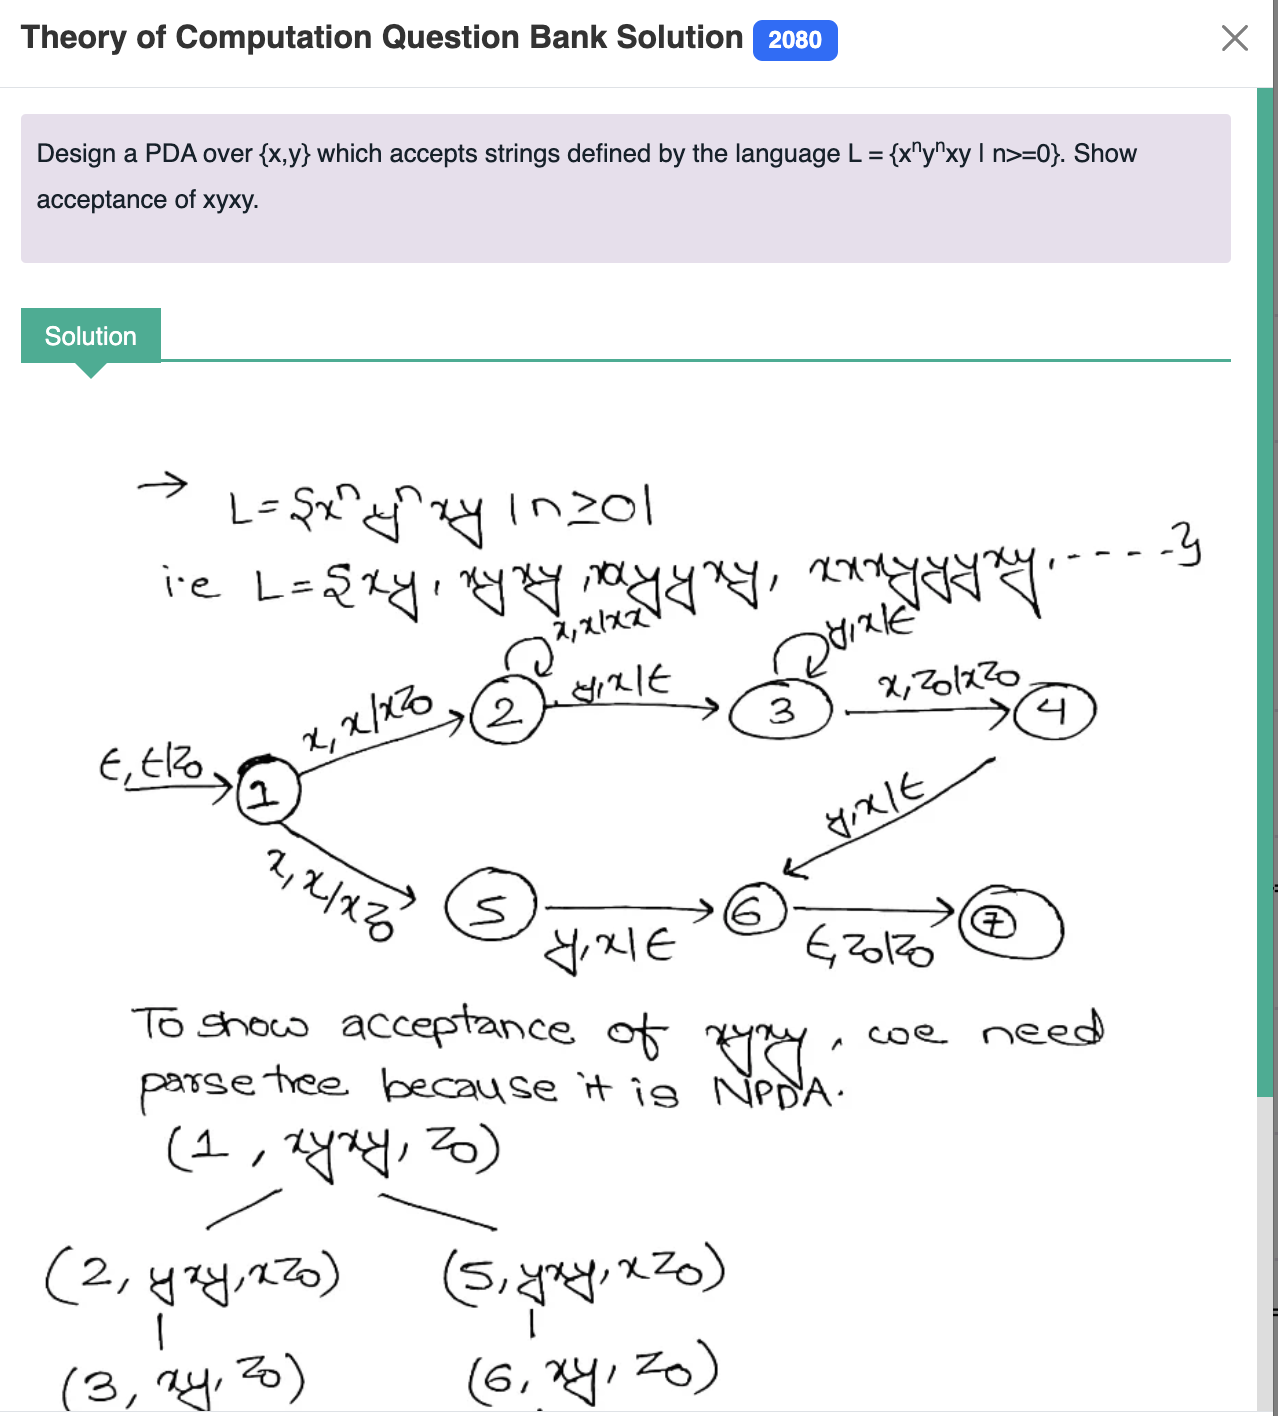 Theory of Computation Question Bank Solution 2080
Design a PDA over {x,y} which accepts strings defined by the language L = {xⁿyⁿxy | n>=0}. Show
acceptance of xyxy.
Solution
→ L = {xⁿyⁿxy | n≥0|
i.e L = {xy, xyxy, xxyyxy, xxxyyyxy, ----}
x, x|xx
y, x|ε
x, x|xz₀
2
y, x|ε
3
x, z₀|xz₀
4
ε, ε|z₀
1
y, x|ε
x, x/xz₀
5
y, x|ε
6
ε, z₀|z₀
7
To show acceptance of xyxy, we need
parse tree because it is NPDA.
(1, xyxy, z₀)
(2, yxy, xz₀) (5, yxy, xz₀)
(3, xy, z₀) (6, xy, z₀)